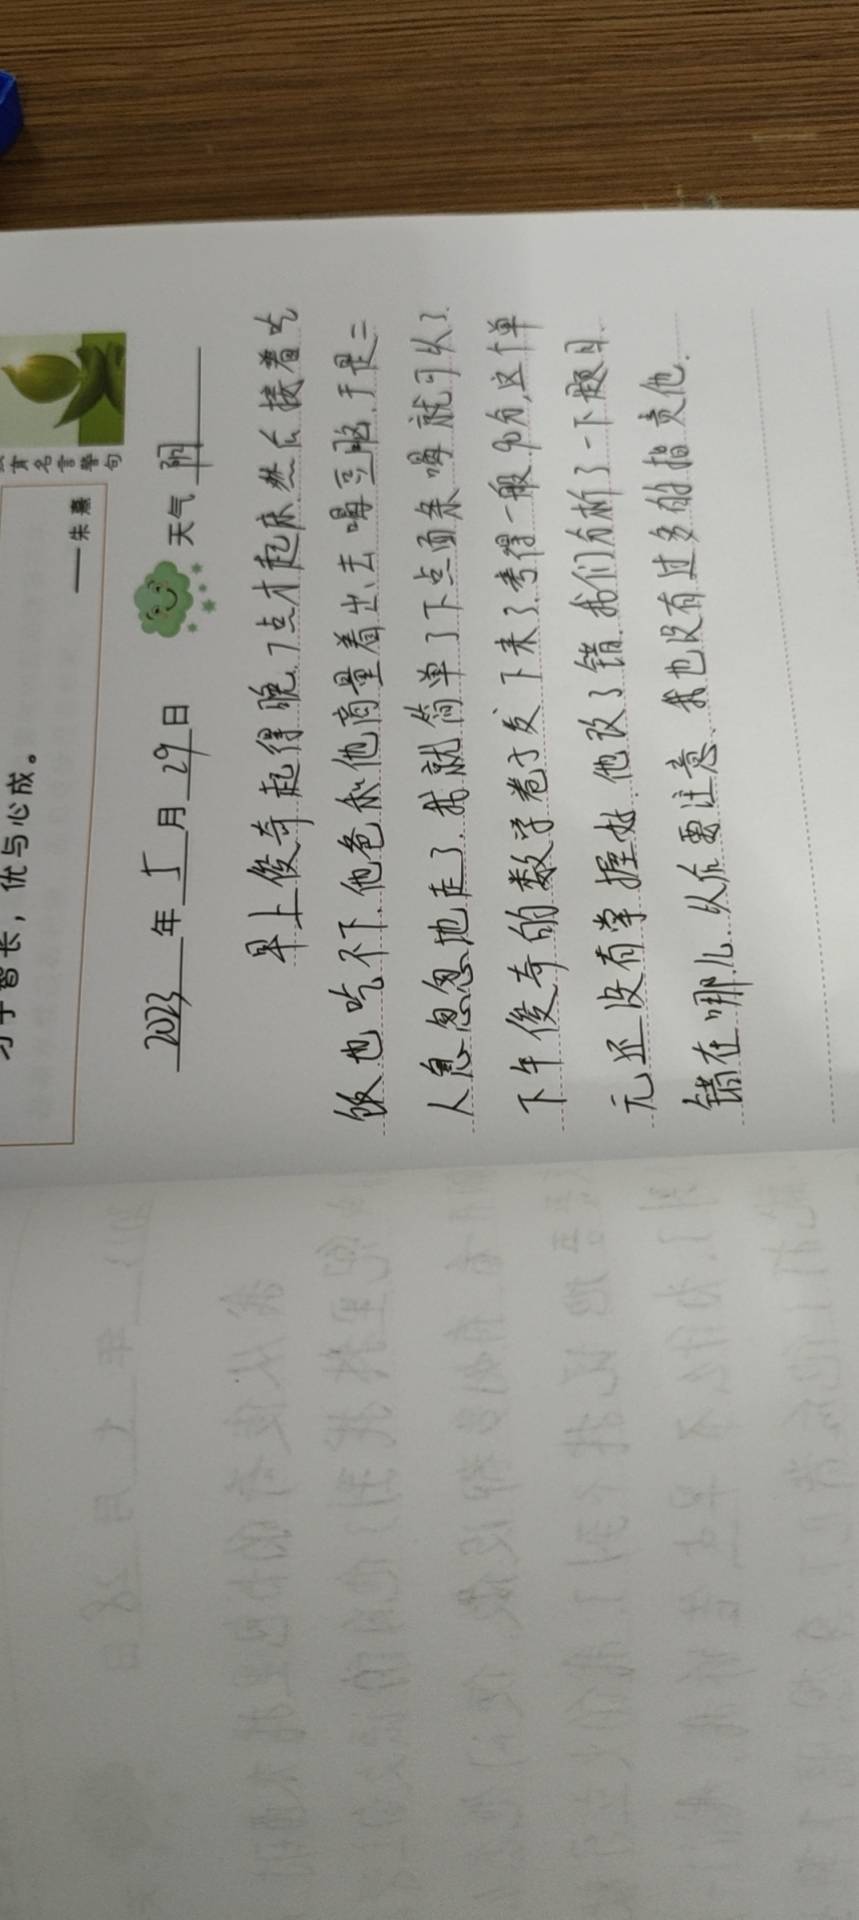 习于智长，优与心成。
——朱熹
教育名言警句
2023年5月29日 天气 阴
早上俊奇起得晚，7点才起床，然后接着吃
饭也吃不下，他爸和他商量着出去喝豆脑，于是二
人忽忽忽地走了，我就简单了下点面条喝就可以了.
下午俊奇的数学卷子发下来了，考得一般90分，这个单
元还没有掌握好，他改了错，我们分析了一下题目.
错在哪儿，以后要注意、我也没有过多的指责他.